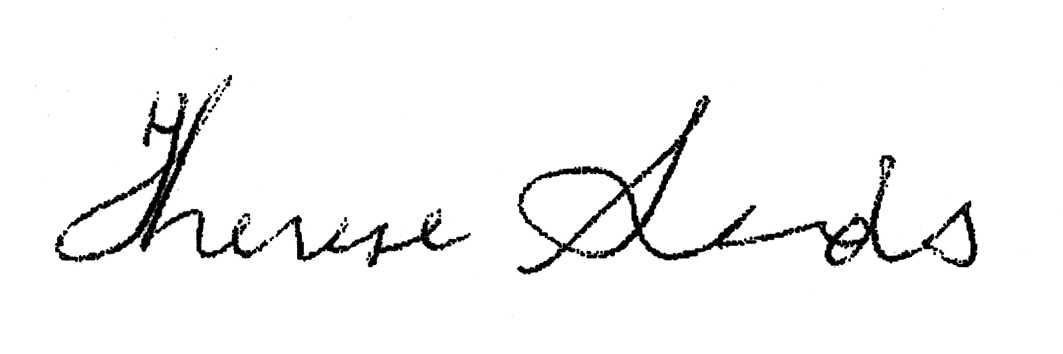 Therese Sands